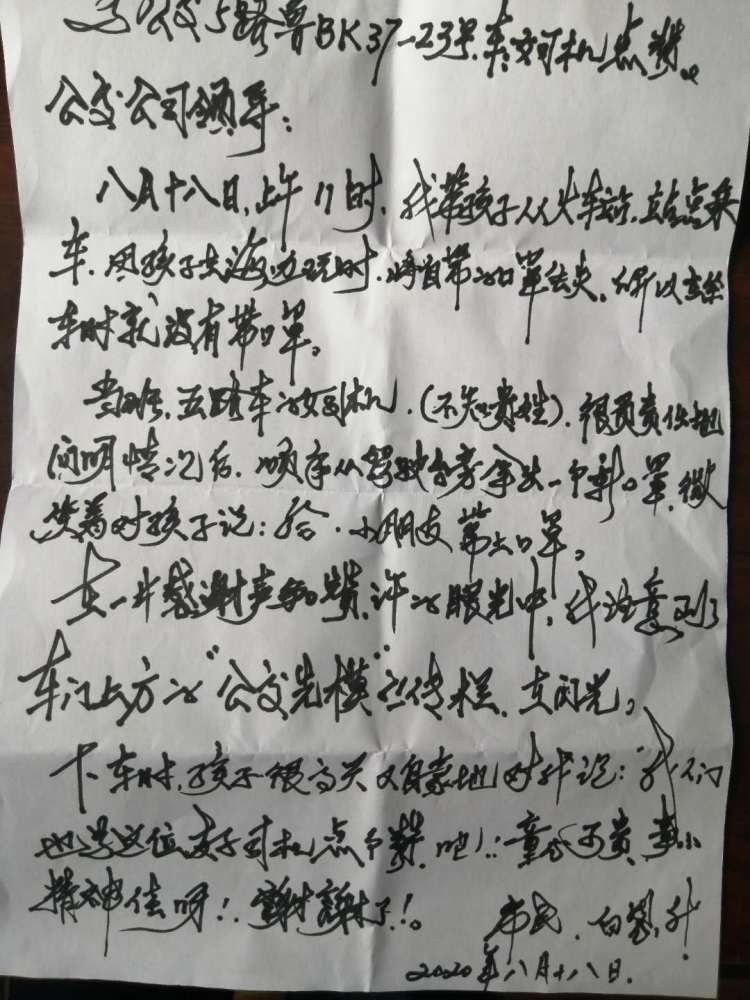 为公交5路鲁BK37-23号车女司机点赞。
公交公司领导:
八月十八日,上午11时,我带孩子从火车站,站点乘
车,因孩子去海边玩时,将自带的口罩丢失,所以在坐
车时就没有带口罩。
当时,五路车的女司机,(不知贵姓),很负责任地
问明情况后,顺手从驾驶台旁拿出一个新口罩,微
笑着对孩子说:给,小朋友带上口罩。
在一片感谢声和赞许的眼光中,我注意到了
车门上方的“公交先模”宣传栏,在闪光。
下车时,孩子很高兴又自豪地对我说:“我们
也为这位女子司机点个赞吧!:童心可贵,事小
精神佳呀!谢谢了!。
市民,白
2020年八月十八日.